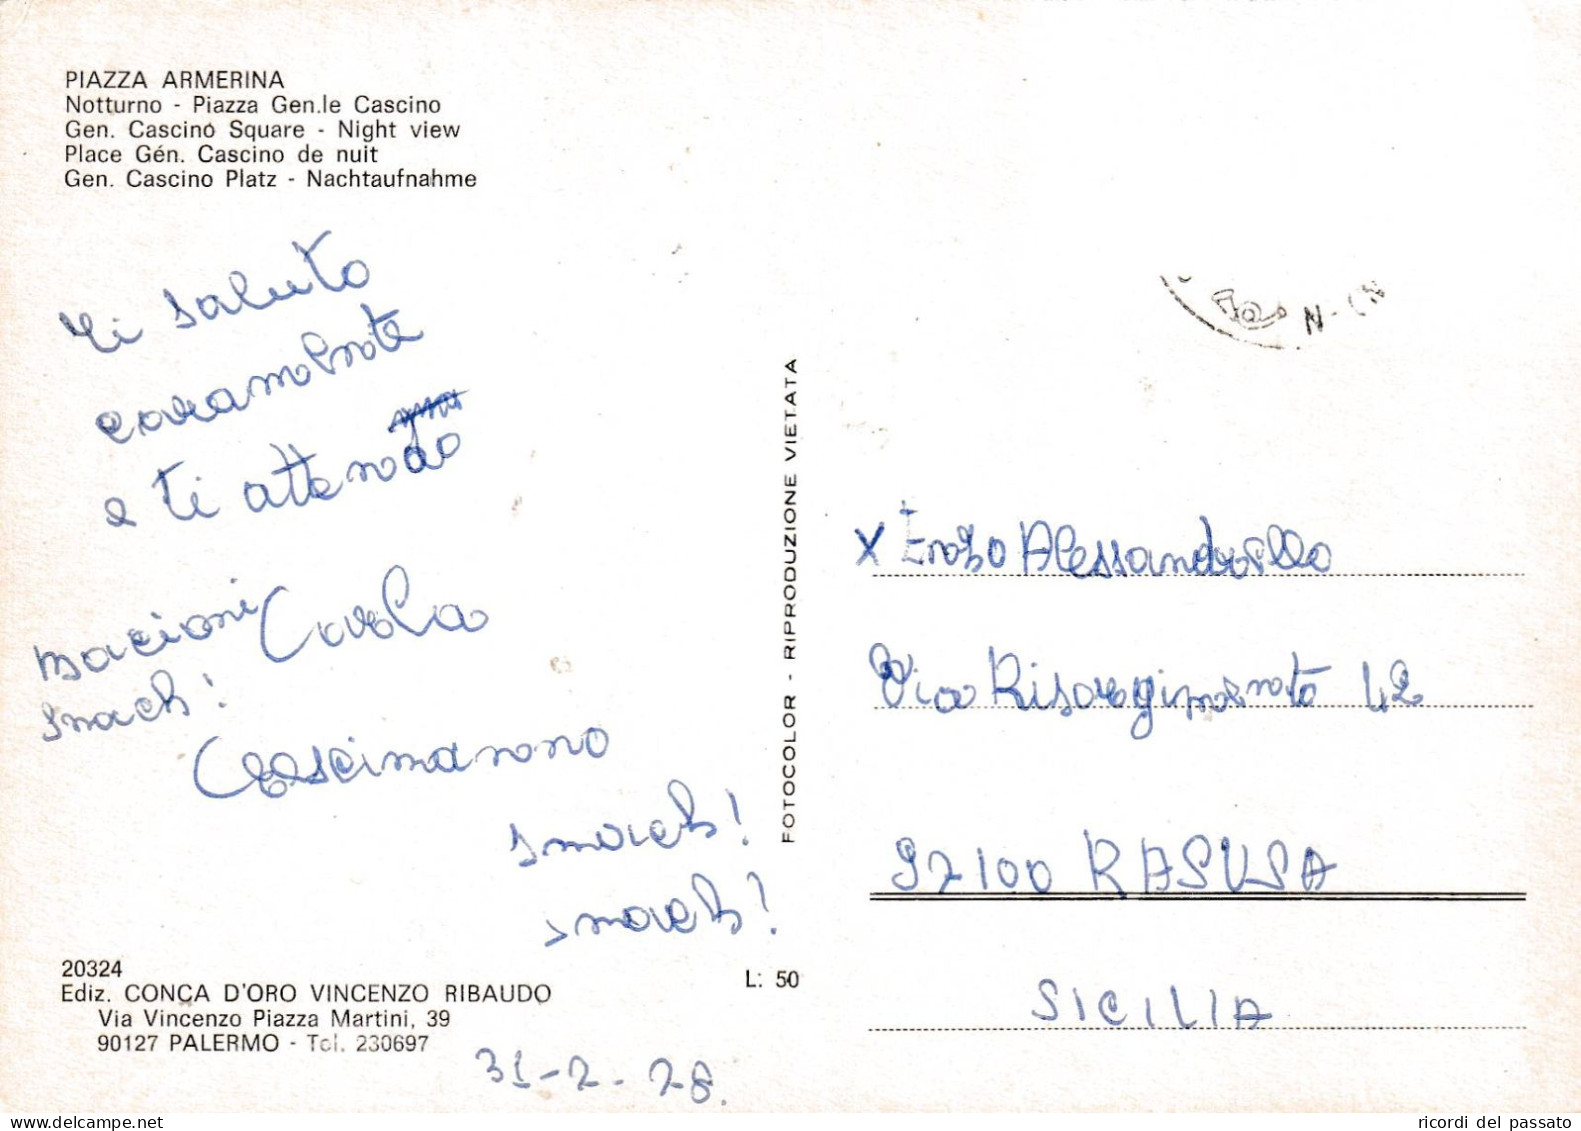 PIAZZA ARMERINA
Notturno - Piazza Gen.le Cascino
Gen. Cascino Square - Night view
Place Gén. Cascino de nuit
Gen. Cascino Platz - Nachtaufnahme
Ti saluto
caramente
e ti attendo
Bacioni Carola
smack!
smack!
smack!
20324
Ediz. CONCA D'ORO VINCENZO RIBAUDO
Via Vincenzo Piazza Martini, 39
90127 PALERMO - Tel. 230697
L: 50
31-7-78.
FOTOCOLOR - RIPRODUZIONE VIETATA
x Enzo Alessandrello
Via Risorgimento 42
97100 RAGUSA
SICILIA
ricordi del passato